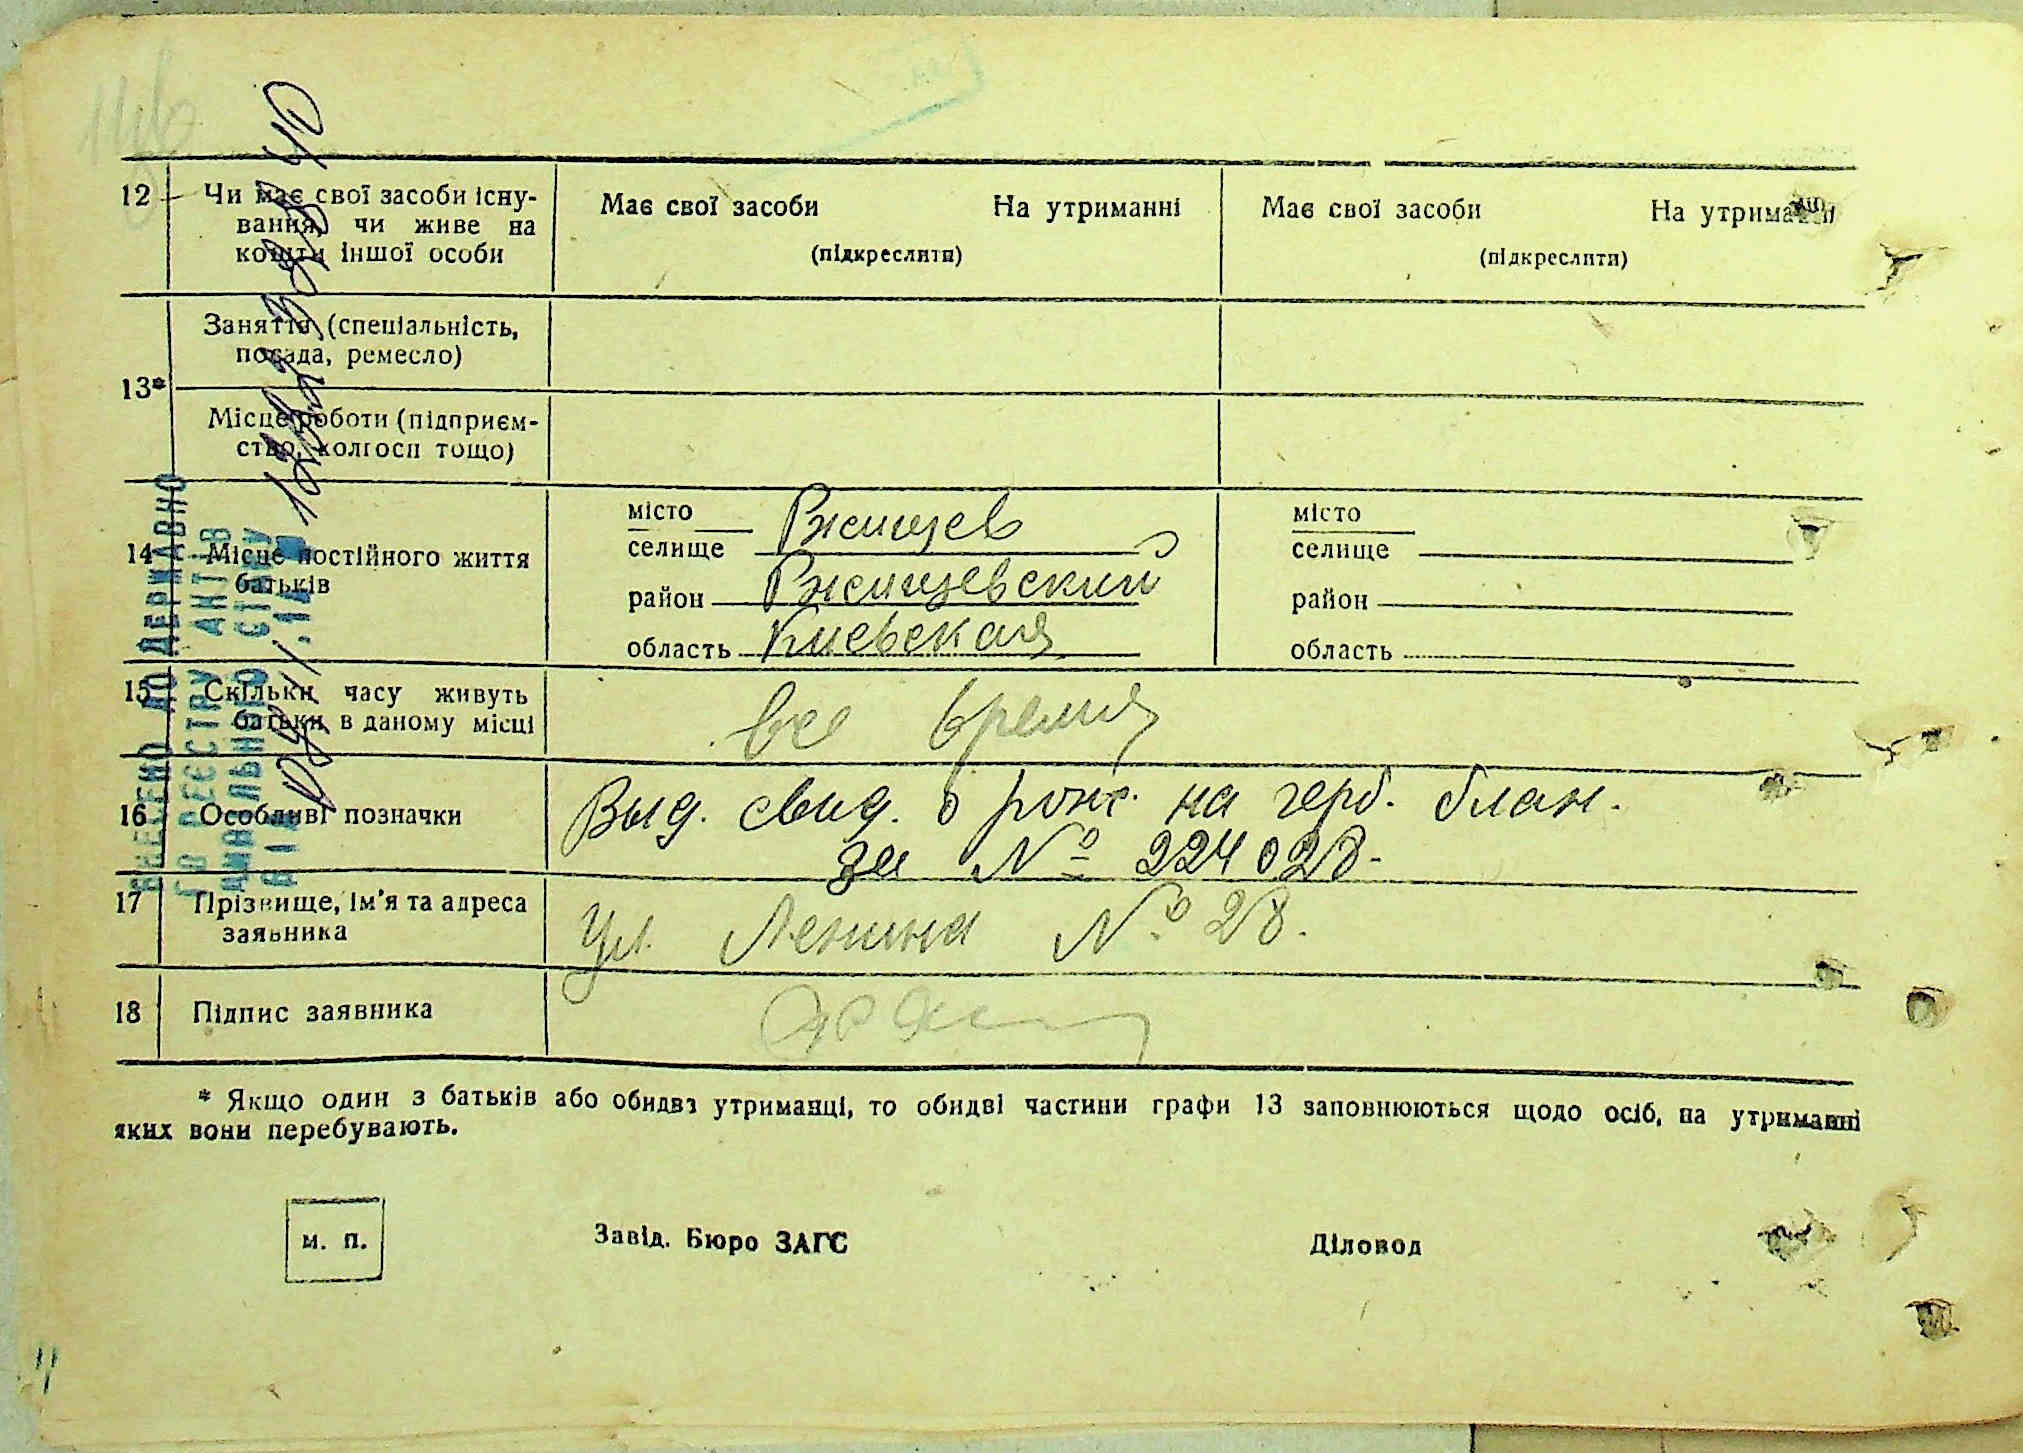 12 Чи має свої засоби існу-
вання, чи живе на
кошти іншої особи
Має свої засоби На утриманні
(підкреслити)
Має свої засоби На утриманні
(підкреслити)
13*
Заняття (спеціальність,
посада, ремесло)
Місце роботи (підприєм-
ство, колгосп тощо)
14 Місце постійного життя
батьків
місто
селище Ржищев
район Ржищевский
область Киевская
місто
селище
район
область
15 Скільки часу живуть
батьки в даному місці
все время
16 Особливі позначки
Выд. свид. о рож. на герб. блан.
за № 224028-
17 Прізвище, ім'я та адреса
заявника
Ул. Ленина № 28.
18 Підпис заявника
* Якщо один з батьків або обидва утриманці, то обидві частини графи 13 заповнюються щодо осіб, на утриманні
яких вони перебувають.
м. п.
Завід. Бюро ЗАГС
Діловод
ВНЕСЕНО ДО ДЕРЖАВНО
ГО РЕЄСТРУ АКТІВ
ЦИВІЛЬНОГО СТАНУ